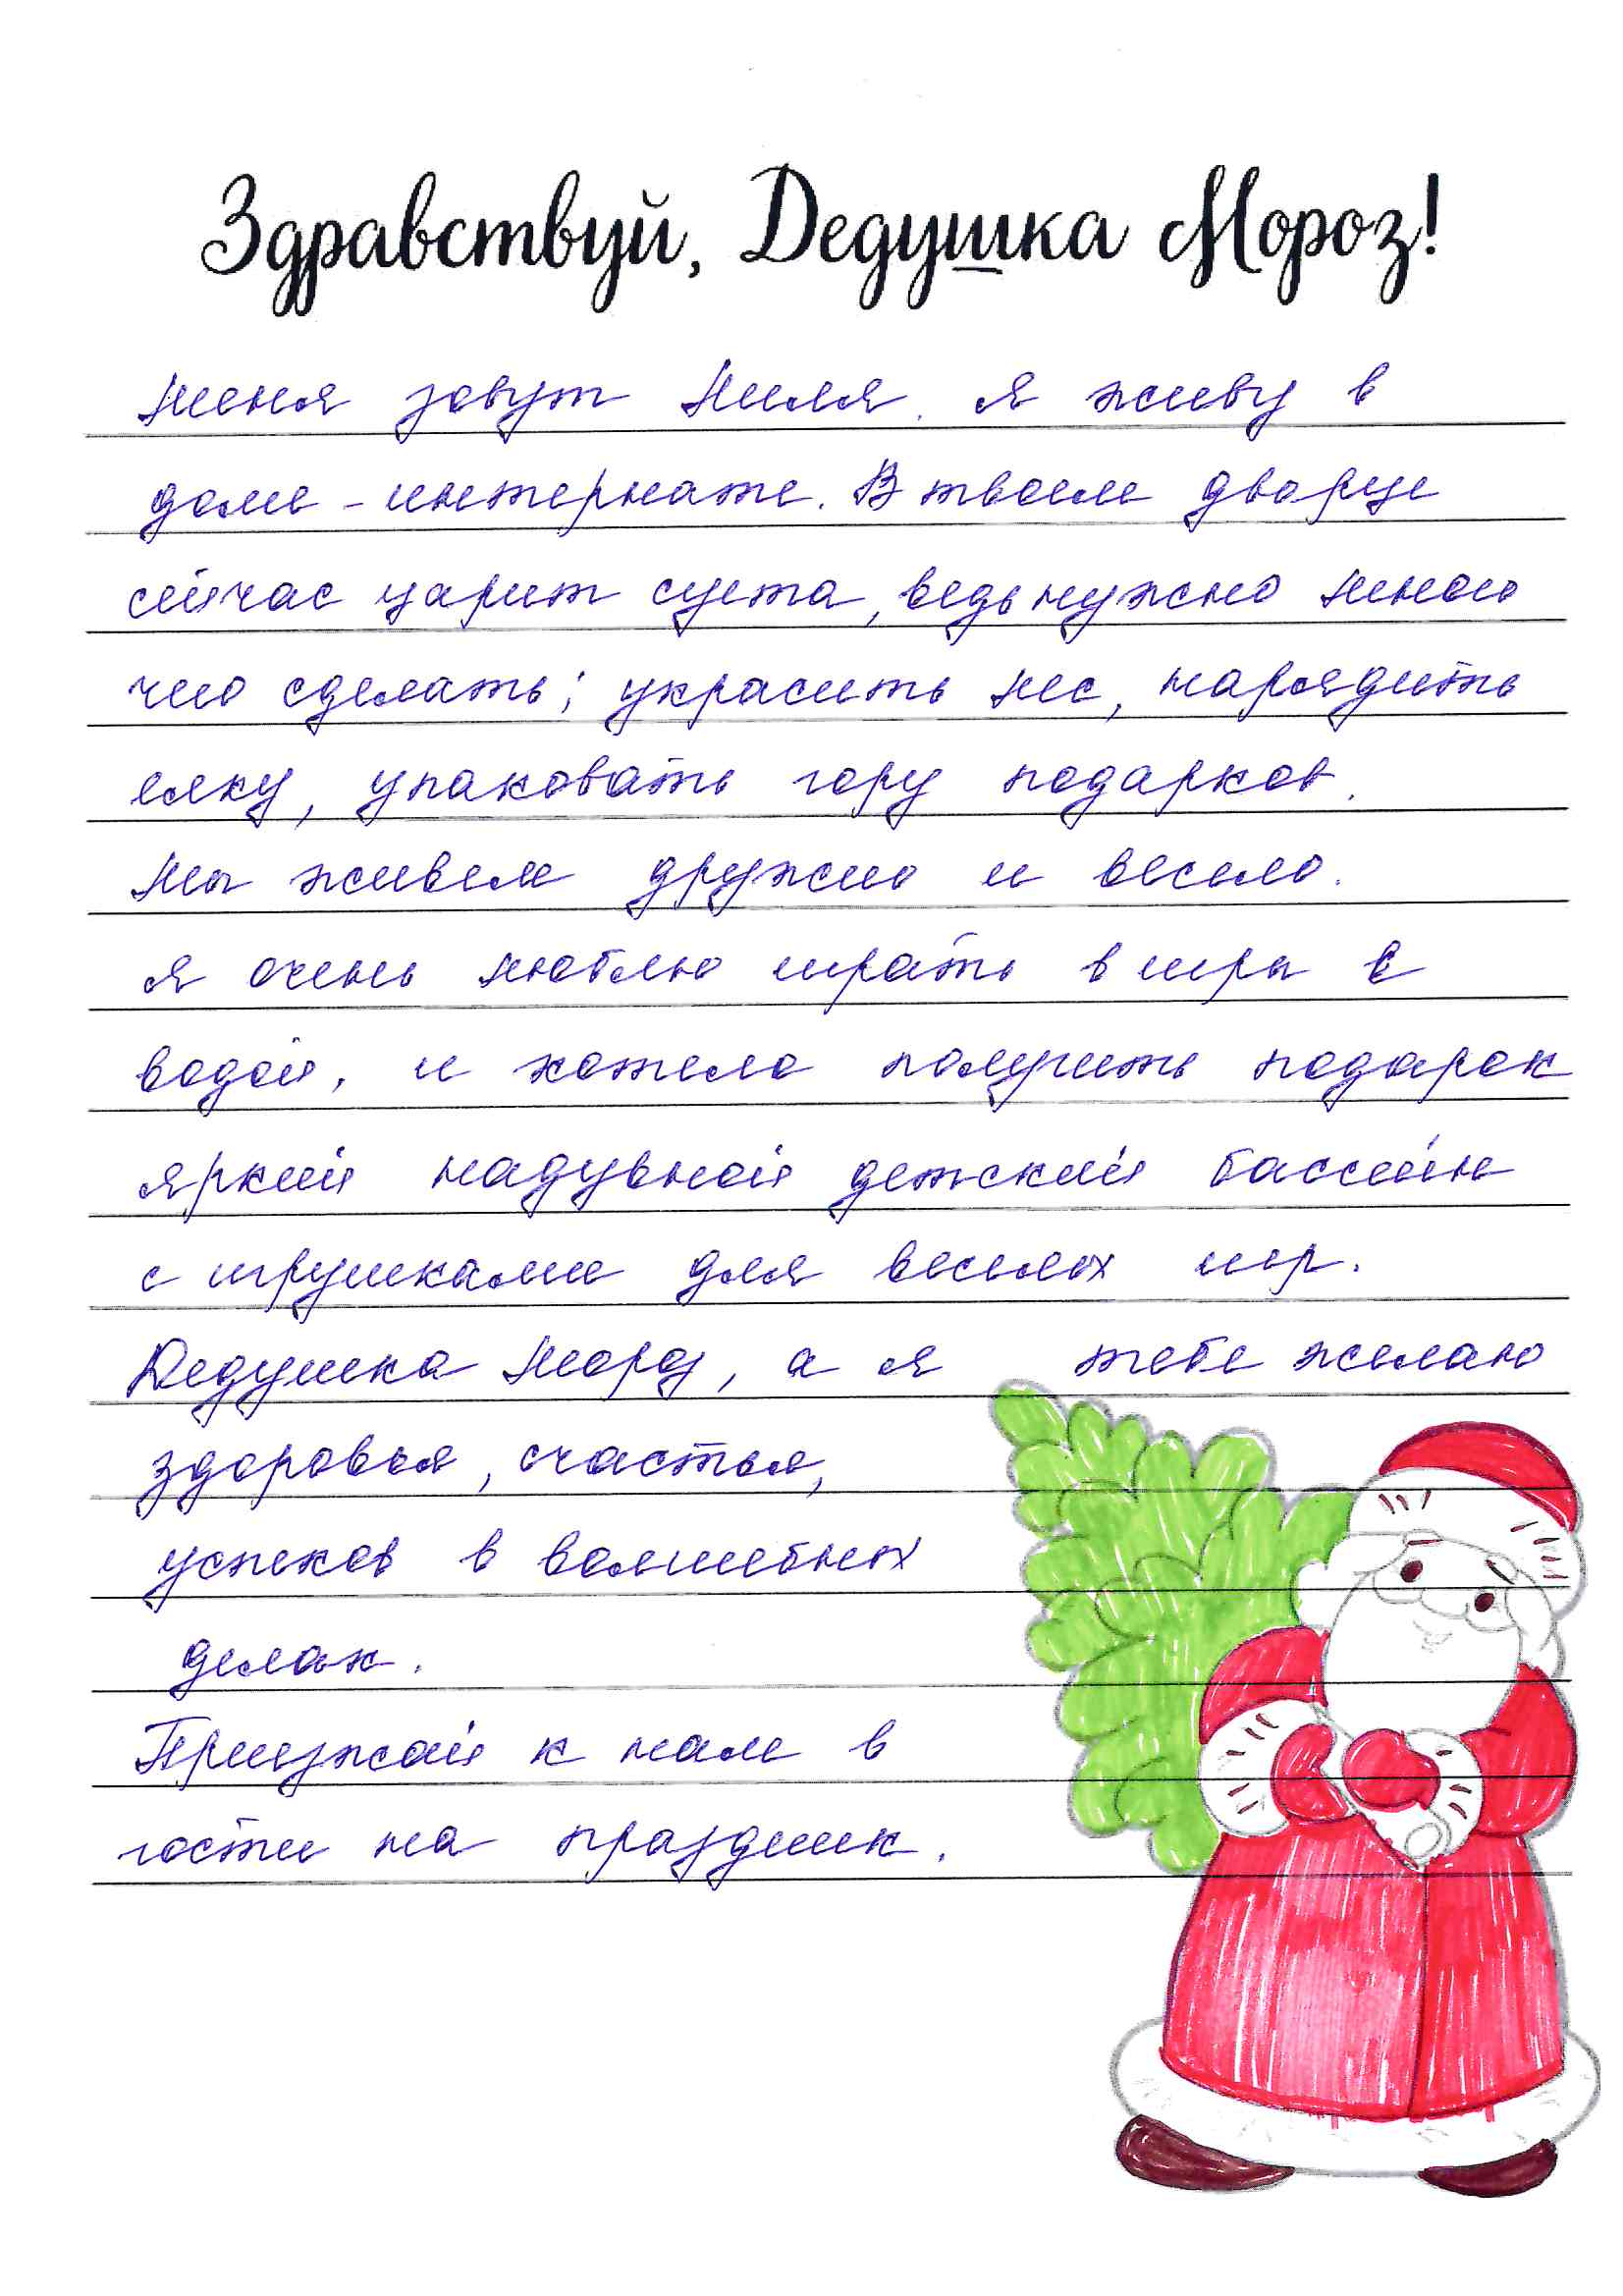 Здравствуй, Дедушка Мороз!
Меня зовут Миля. Я живу в
доме-интернате. В твоем дворце
сейчас царит суета, ведь нужно много
чего сделать; украсить лес, нарядить
елку, упаковать гору подарков.
Мы живем дружно и весело.
Я очень люблю играть в игры с
водой, и хотела получить подарок
яркий надувной детский бассейн
с игрушками для веселых игр.
Дедушка Мороз, а я тебе желаю
здоровья, счастья,
успехов в волшебных
делах.
Приезжай к нам в
гости на праздник.